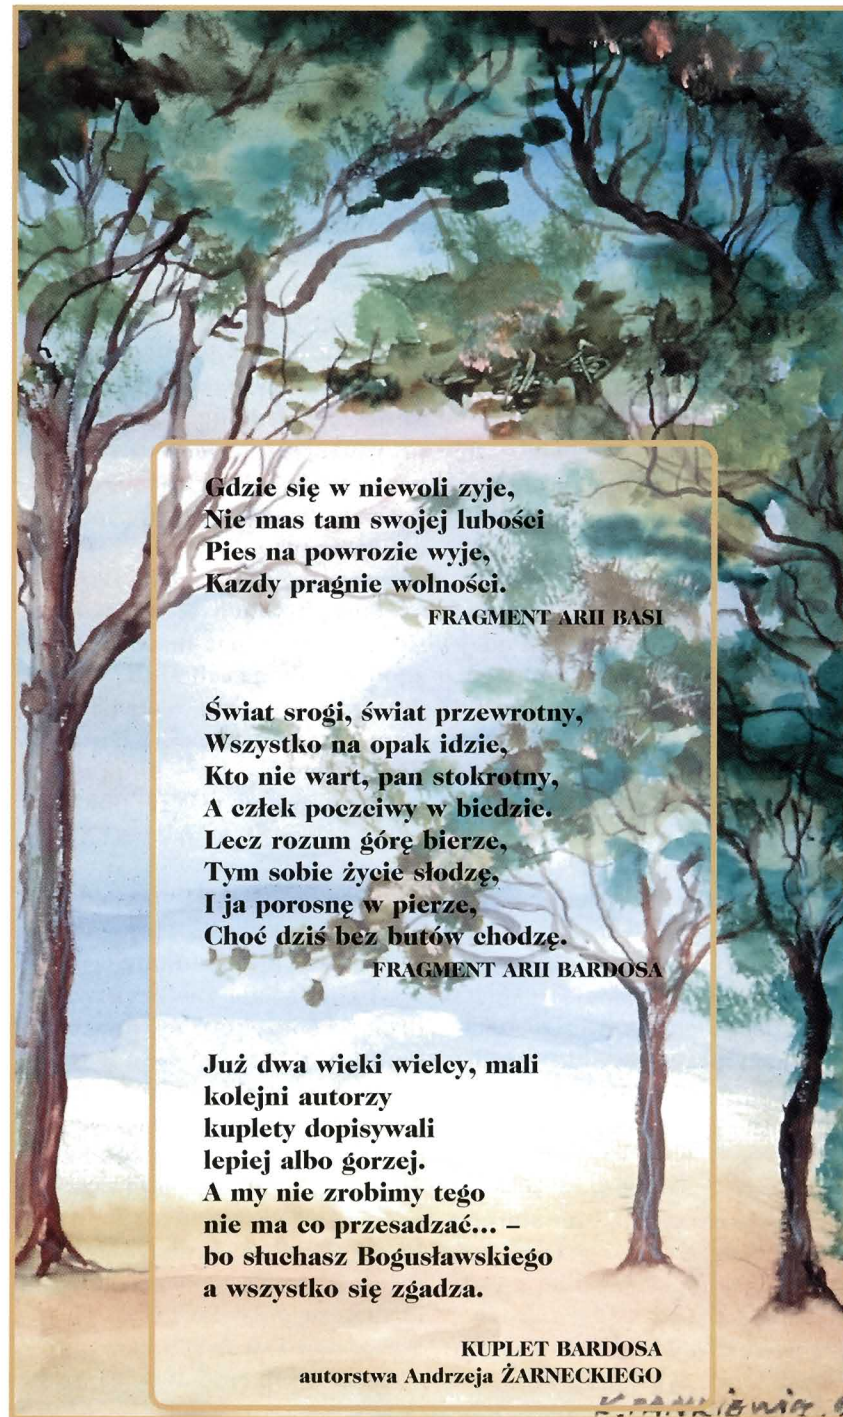 Gdzie się w niewoli zyje,
Nie mas tam swojej lubości
Pies na powrozie wyje,
Kazdy pragnie wolności.
FRAGMENT ARII BASI
Świat srogi, świat przewrotny,
Wszystko na opak idzie,
Kto nie wart, pan stokrotny,
A człek poczciwy w biedzie.
Lecz rozum górę bierze,
Tym sobie życie słodzę,
I ja porosnę w pierze,
Choć dziś bez butów chodzę.
FRAGMENT ARII BARDOSA
Już dwa wieki wielcy, mali
kolejni autorzy
kuplety dopisywali
lepiej albo gorzej.
A my nie zrobimy tego
nie ma co przesadzać... –
bo słuchasz Bogusławskiego
a wszystko się zgadza.
KUPLET BARDOSA
autorstwa Andrzeja ŻARNECKIEGO